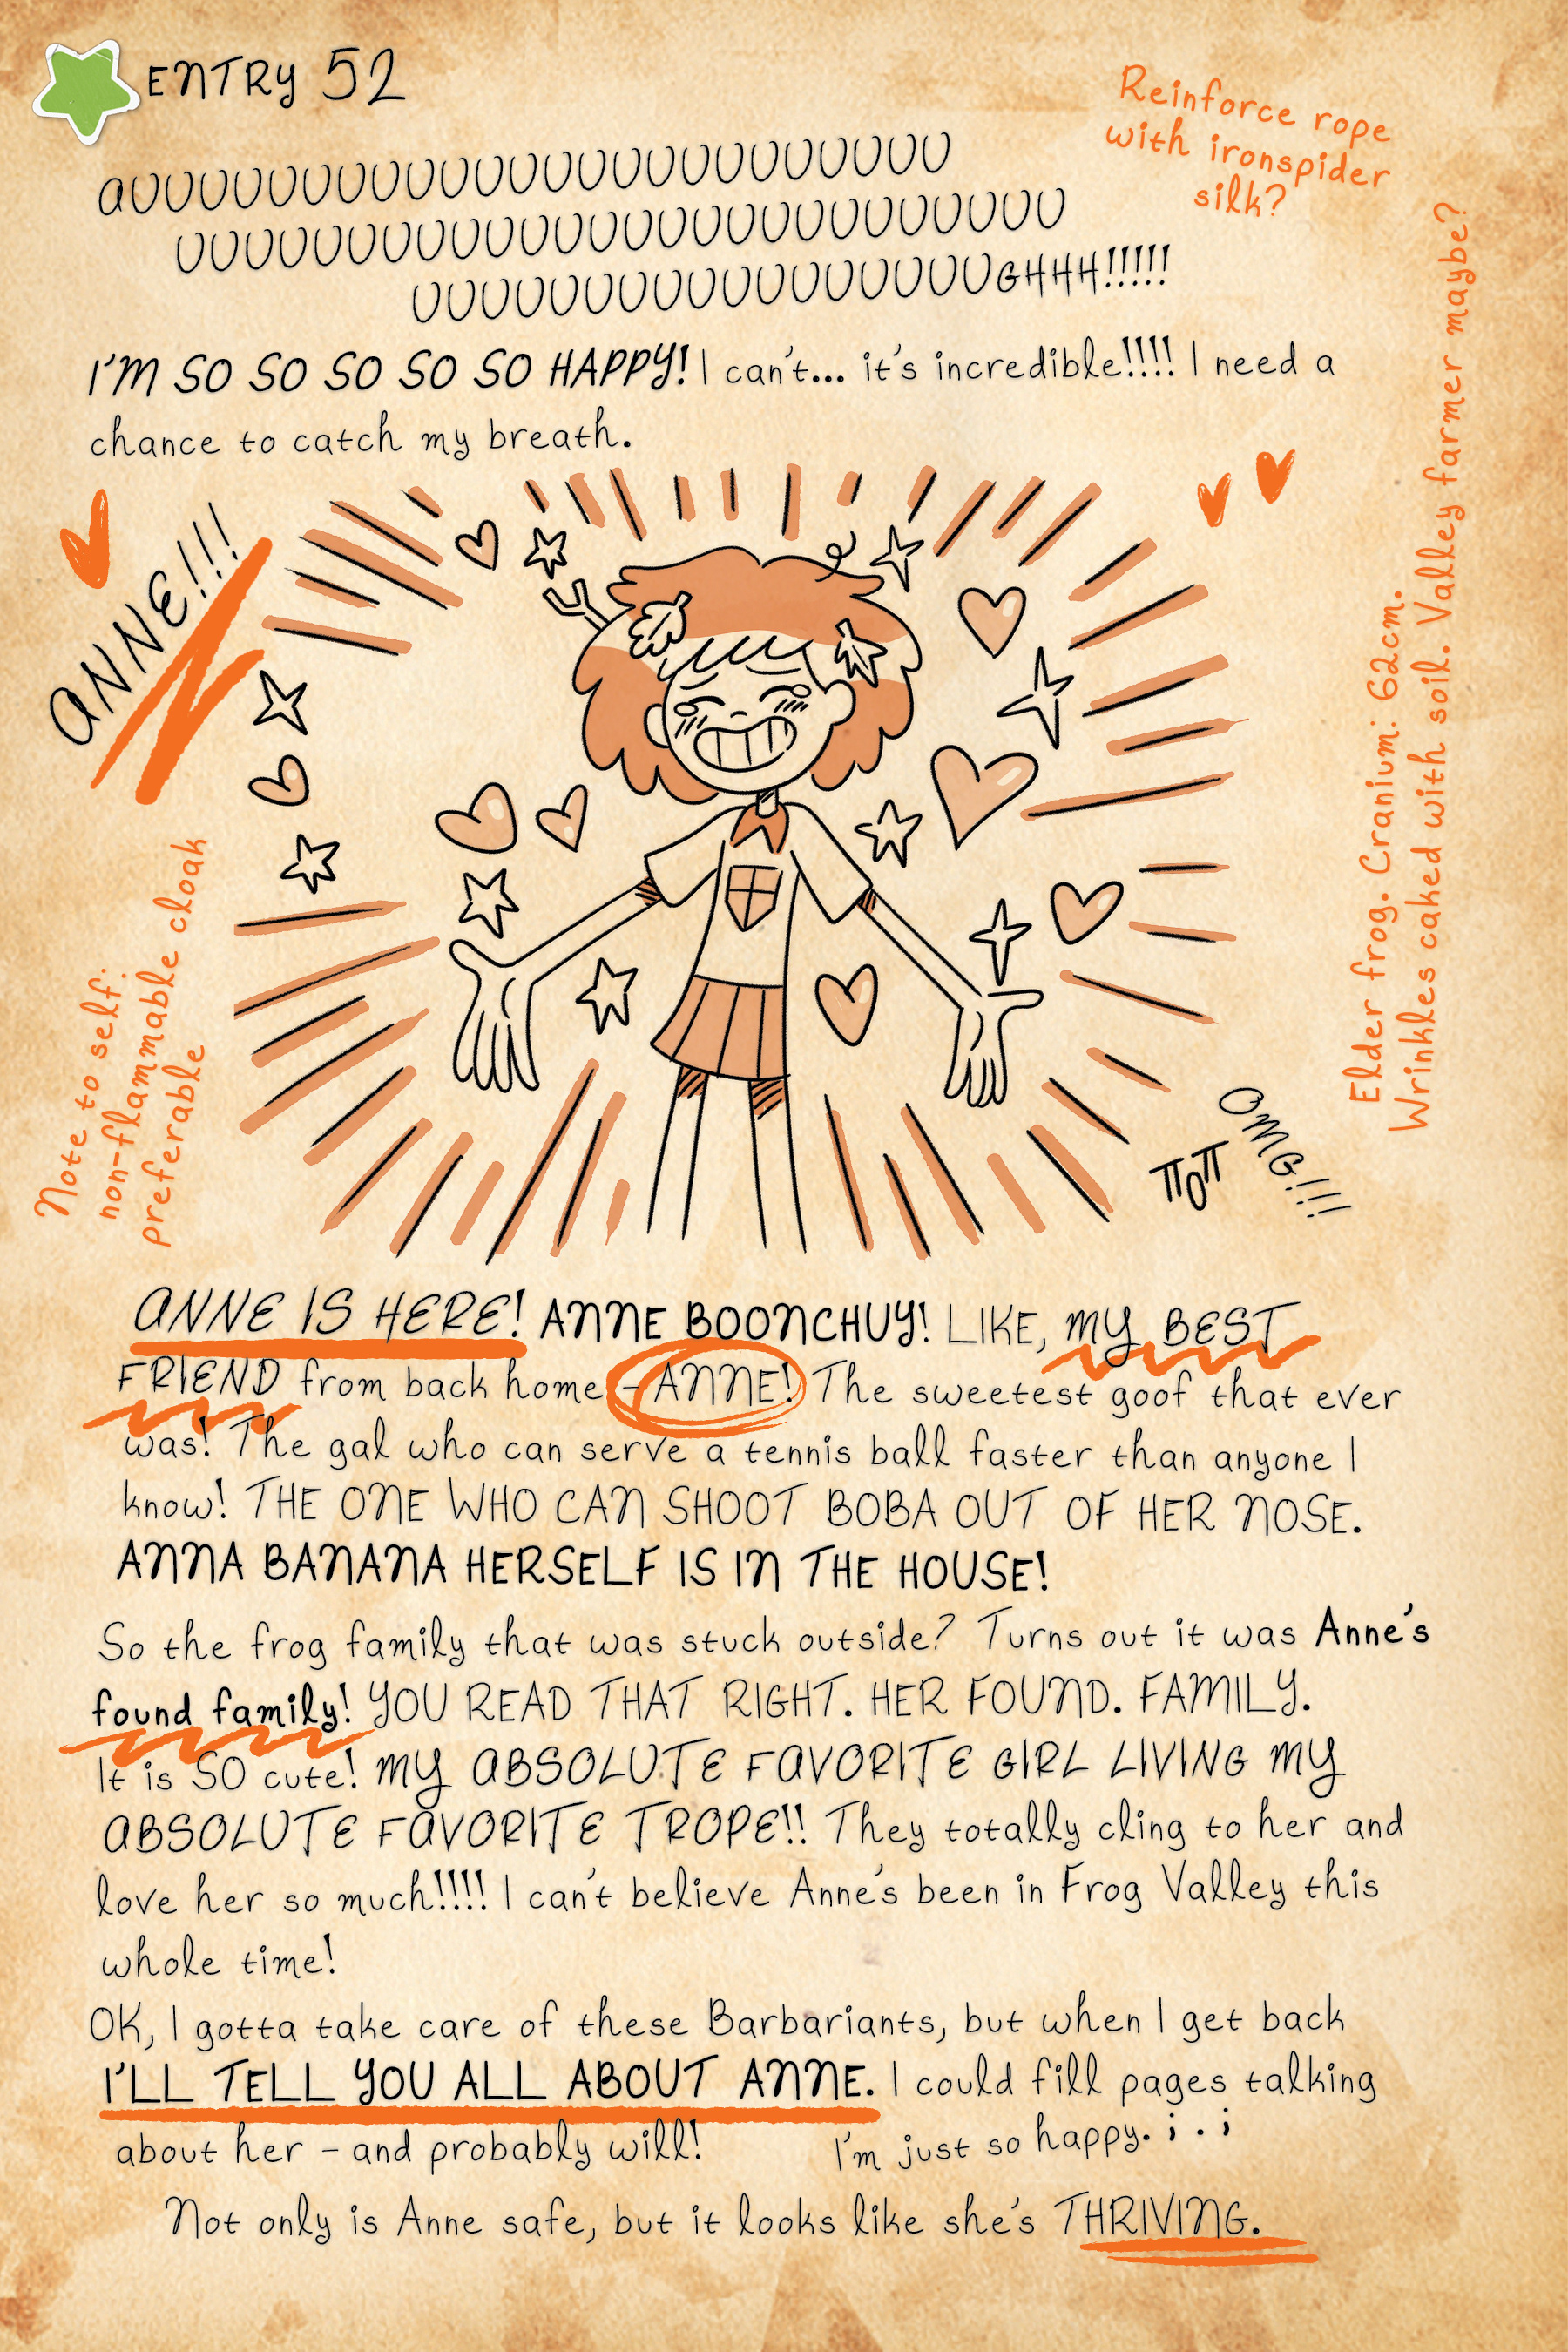 ENTRY 52
Reinforce rope
with ironspider
silk?
AUUUUUUUUUUUUUUUUUUUUUUUU
UUUUUUUUUUUUUUUUUUUUUUUUUU
UUUUUUUUUUUUUUUUUGHHH!!!!!
I'M SO SO SO SO SO HAPPY! I can't... it's incredible!!!! I need a
chance to catch my breath.
ANNE!!!
Note to self:
non-flammable cloak
preferable
Elder frog. Cranium: 62cm.
Wrinkles caked with soil. Valley farmer maybe?
OMG!!!
TToTT
ANNE IS HERE! ANNE BOONCHUY! LIKE, MY BEST
FRIEND from back home - ANNE! The sweetest goof that ever
was! The gal who can serve a tennis ball faster than anyone I
know! THE ONE WHO CAN SHOOT BOBA OUT OF HER NOSE.
ANNA BANANA HERSELF IS IN THE HOUSE!
So the frog family that was stuck outside? Turns out it was Anne's
found family! YOU READ THAT RIGHT. HER FOUND. FAMILY.
It is SO cute! MY ABSOLUTE FAVORITE GIRL LIVING MY
ABSOLUTE FAVORITE TROPE!! They totally cling to her and
love her so much!!!! I can't believe Anne's been in Frog Valley this
whole time!
OK, I gotta take care of these Barbariants, but when I get back
I'LL TELL YOU ALL ABOUT ANNE. I could fill pages talking
about her - and probably will! I'm just so happy. ; . ;
Not only is Anne safe, but it looks like she's THRIVING.